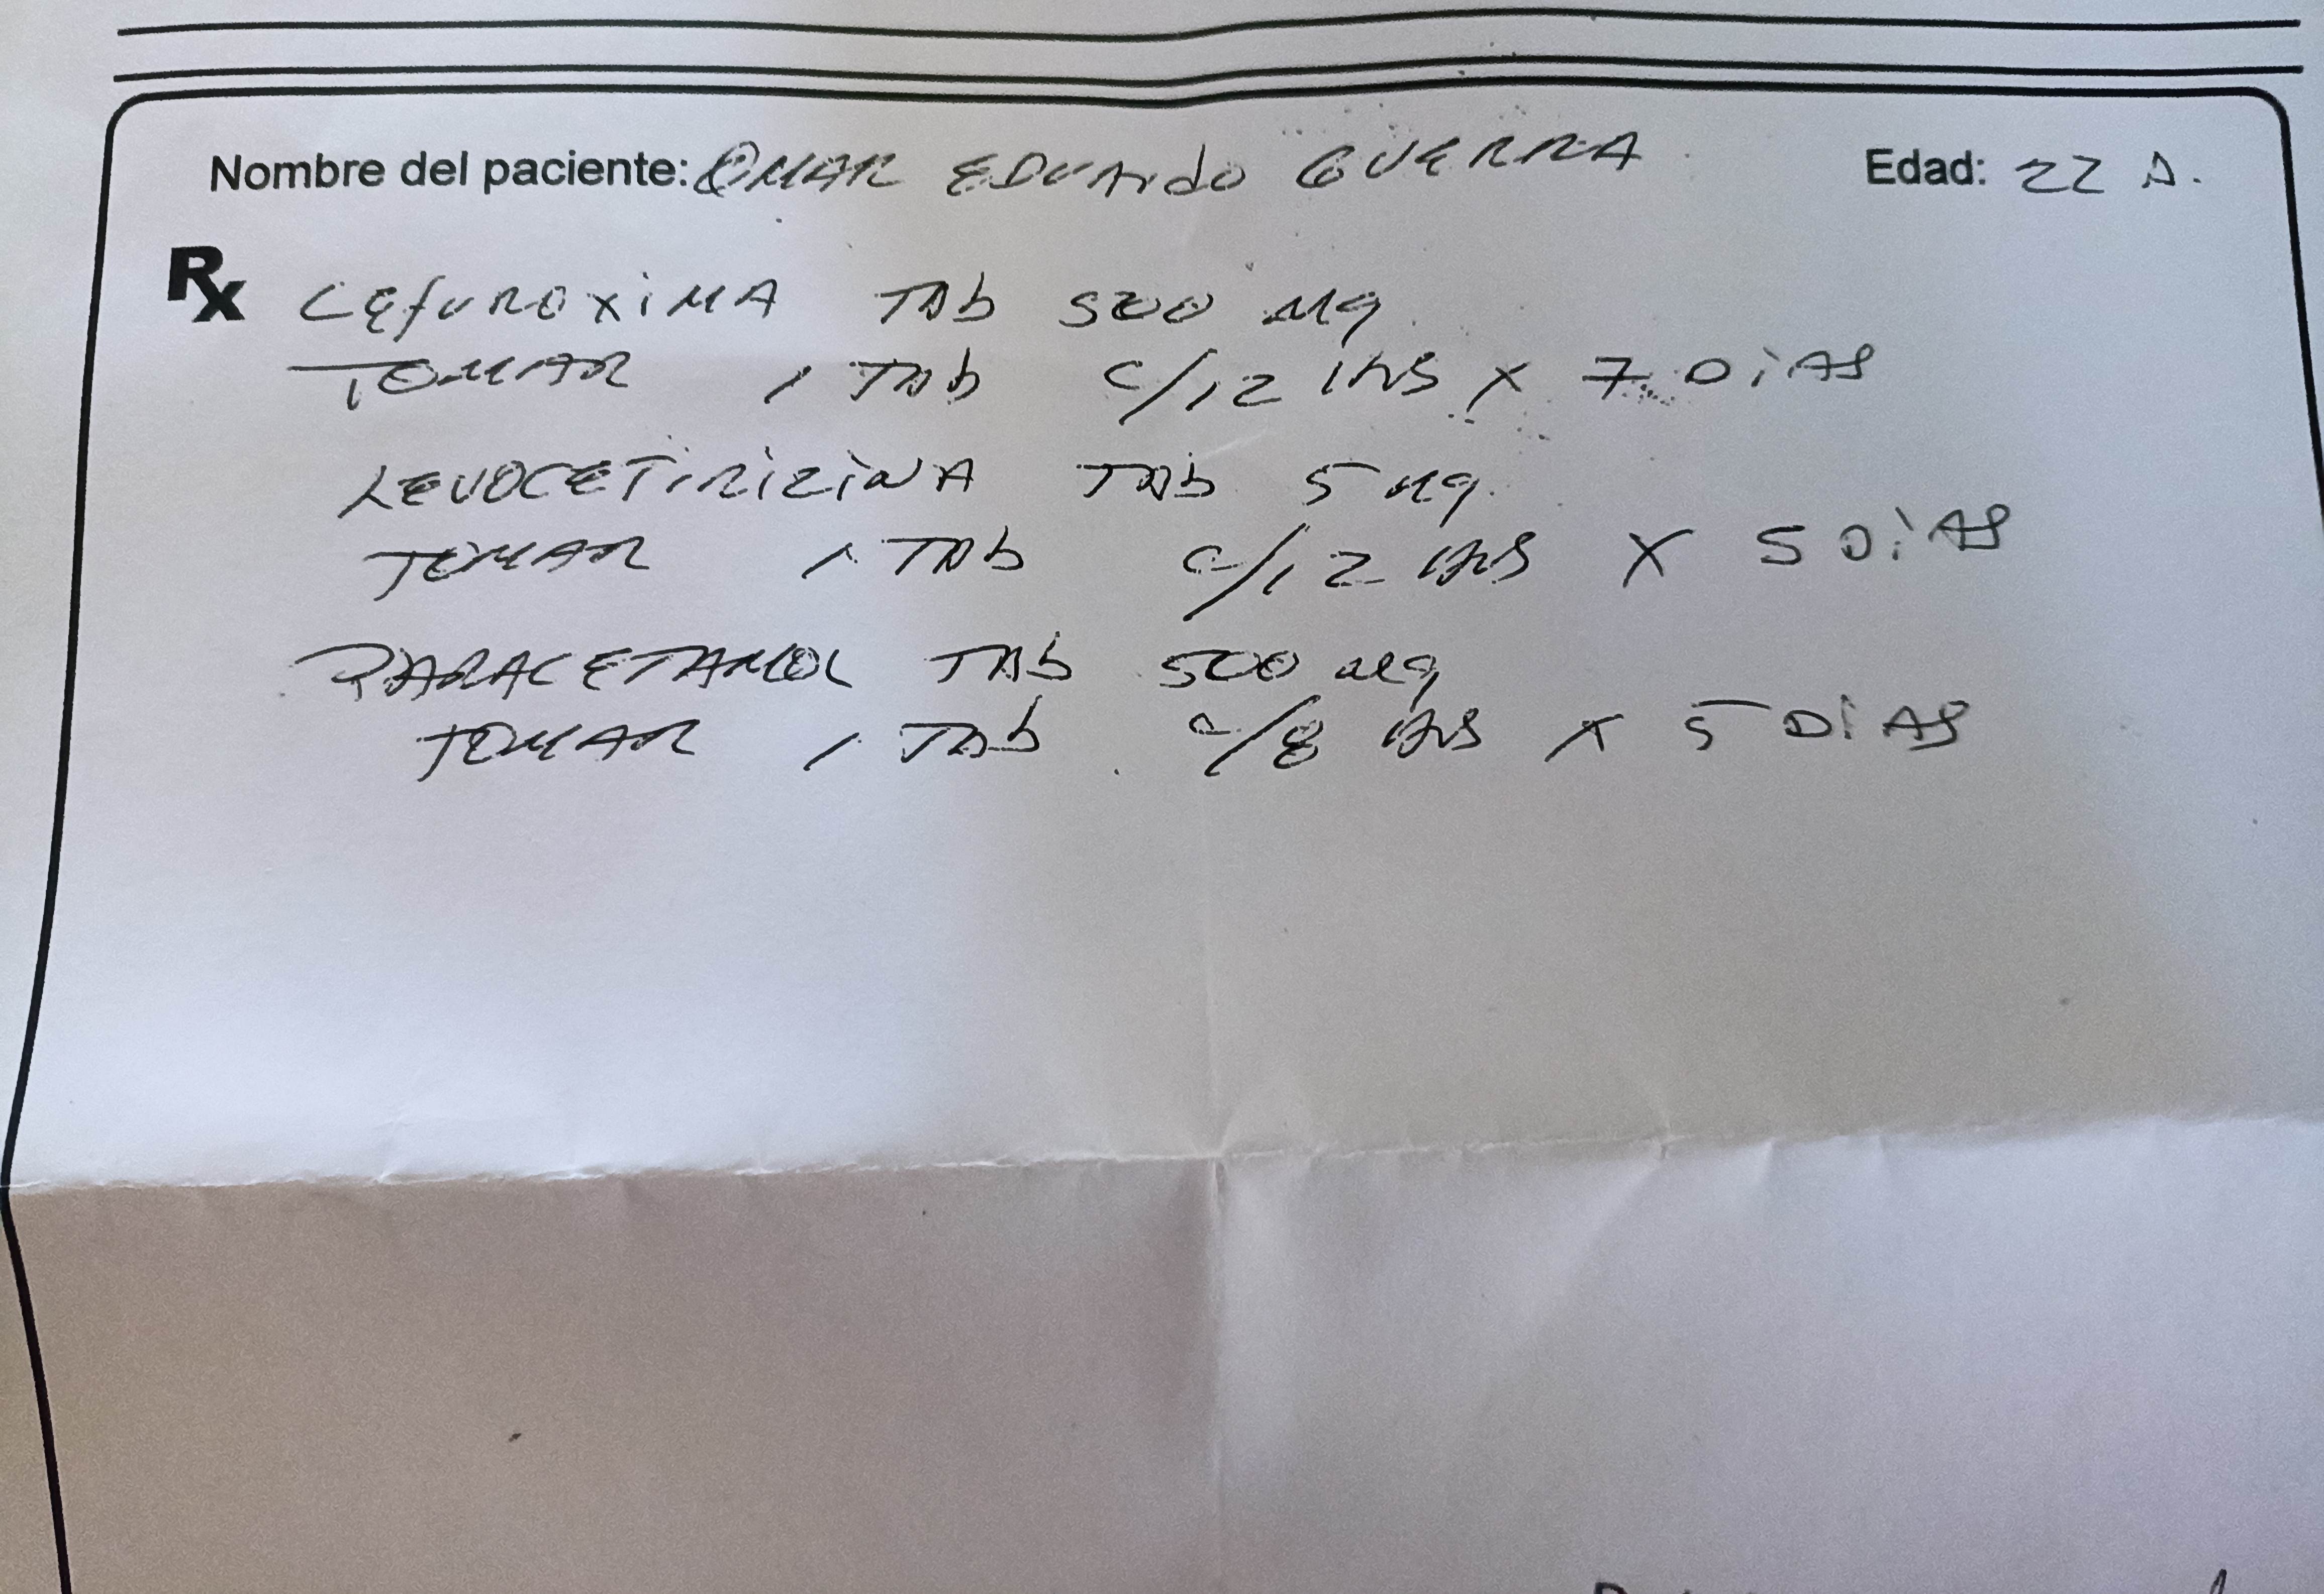 Nombre del paciente: OMAR EDUArdo GUERRA Edad: 22 A.
Rx CEfUROXiMA TAb 500 Mg
TOMAR 1 TAb c/12 HRS X 7 DiAS
LEVOCETiRiZiNA TAb 5 Mg.
TOMAR 1 TAb c/12 HRS X 5 DiAS
PARACETAMOL TAb 500 Mg
TOMAR 1 TAb c/8 HRS X 5 DiAS